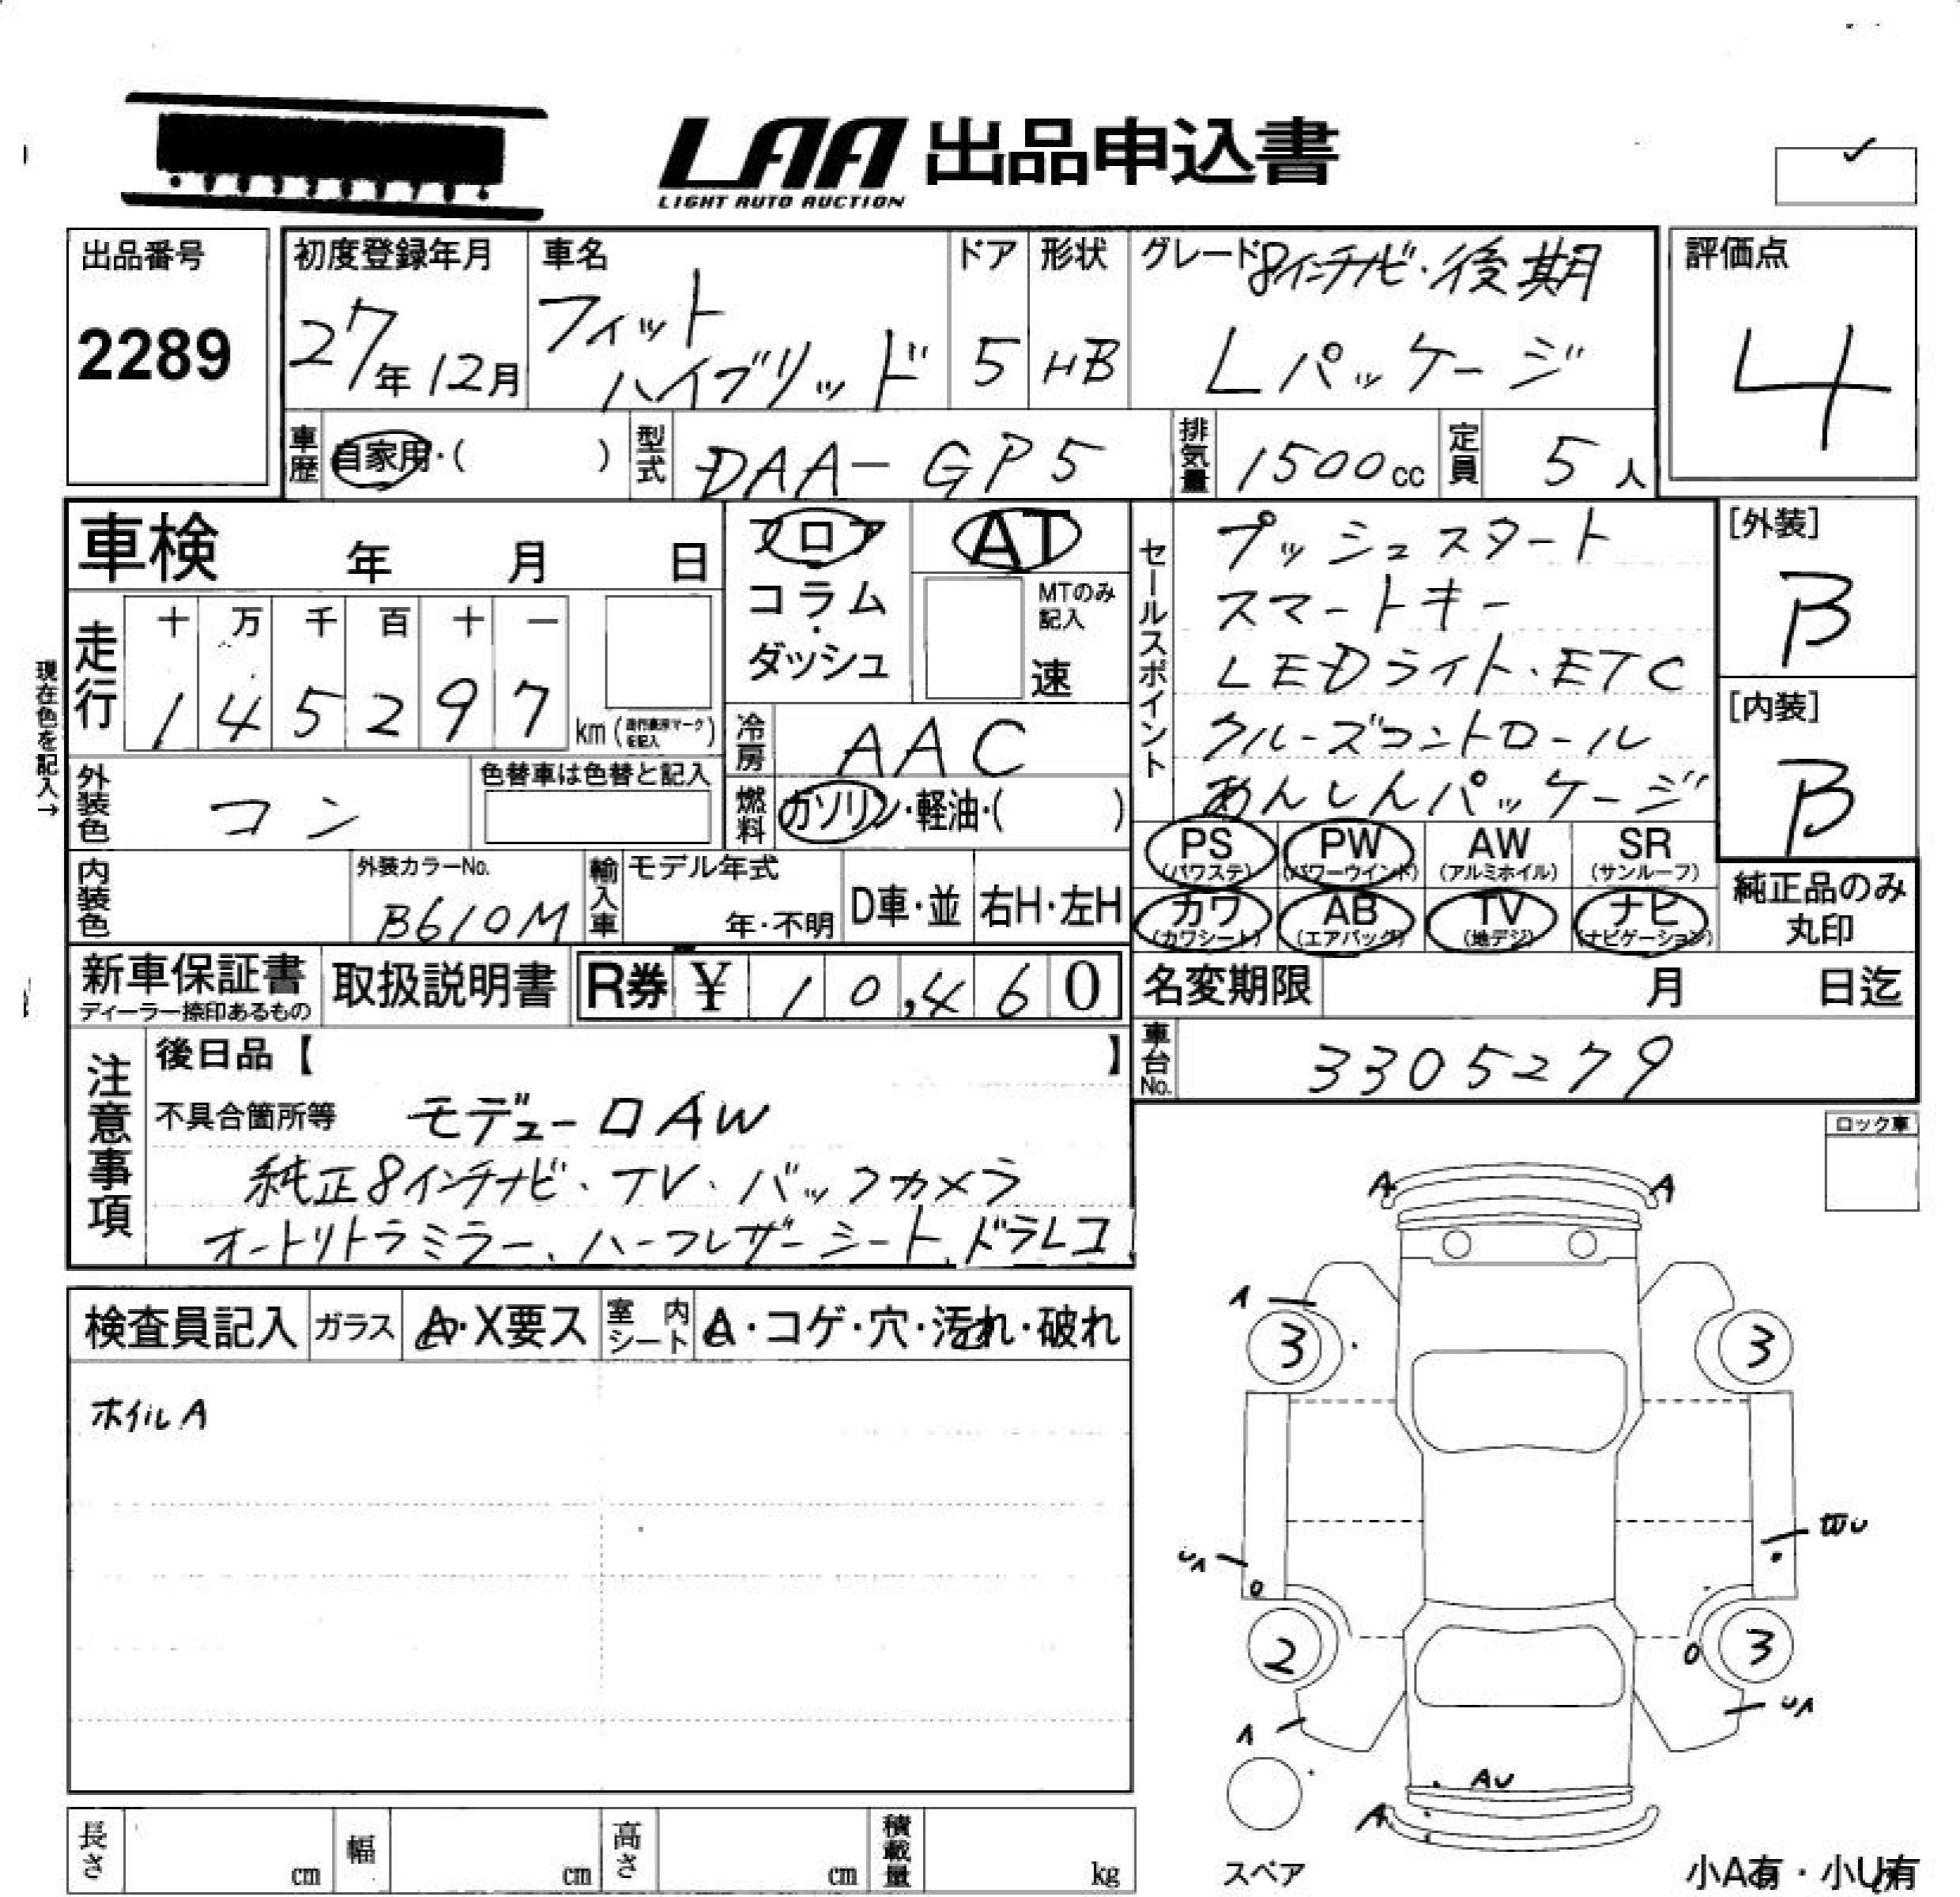 LAA 出品申込書
LIGHT AUTO AUCTION
出品番号
2289
初度登録年月
27年12月
車名
フィット
ハイブリッド
ドア
5
形状
HB
グレード 8インチナビ・後期
Lパッケージ
評価点
4
車歴 自家用・( )
型式 DAA-GP5
排気量 1500cc
定員 5人
車検 年 月 日
フロア
コラム
・
ダッシュ
AT
MTのみ
記入
速
セールスポイント
プッシュスタート
スマートキー
LEDライト・ETC
クルーズコントロール
あんしんパッケージ
[外装]
B
[内装]
B
現在色を記入→
走行
十 万 千 百 十 一
1 4 5 2 9 7 km
冷房 AAC
燃料 ガソリン・軽油・( )
外装色 コン
色替車は色替と記入
PS (パワステ)
PW (パワーウインド)
AW (アルミホイル)
SR (サンルーフ)
カワ (カワシート)
AB (エアバッグ)
TV (地デジ)
ナビ (ナビゲーション)
純正品のみ
丸印
内装色
外装カラーNo.
B610M
輸入車
モデル年式
年・不明
D車・並
右H・左H
新車保証書
ディーラー捺印あるもの
取扱説明書
R券 ¥ 10,460
名変期限 月 日迄
車台No. 3305279
注意事項
後日品【 】
不具合箇所等 モデューロAW
純正8インチナビ・TV・バックカメラ
オートリトラミラー、ハーフレザーシート、ドラレコ
ロック車
検査員記入 ガラス A・X要ス 室内シート A・コゲ・穴・汚れ・破れ
ホイルA
A A
A
3 3
UA
2 3
UA
A
AU
A
スペア
小A有・小U有
長さ cm 幅 cm 高さ cm 積載量 kg